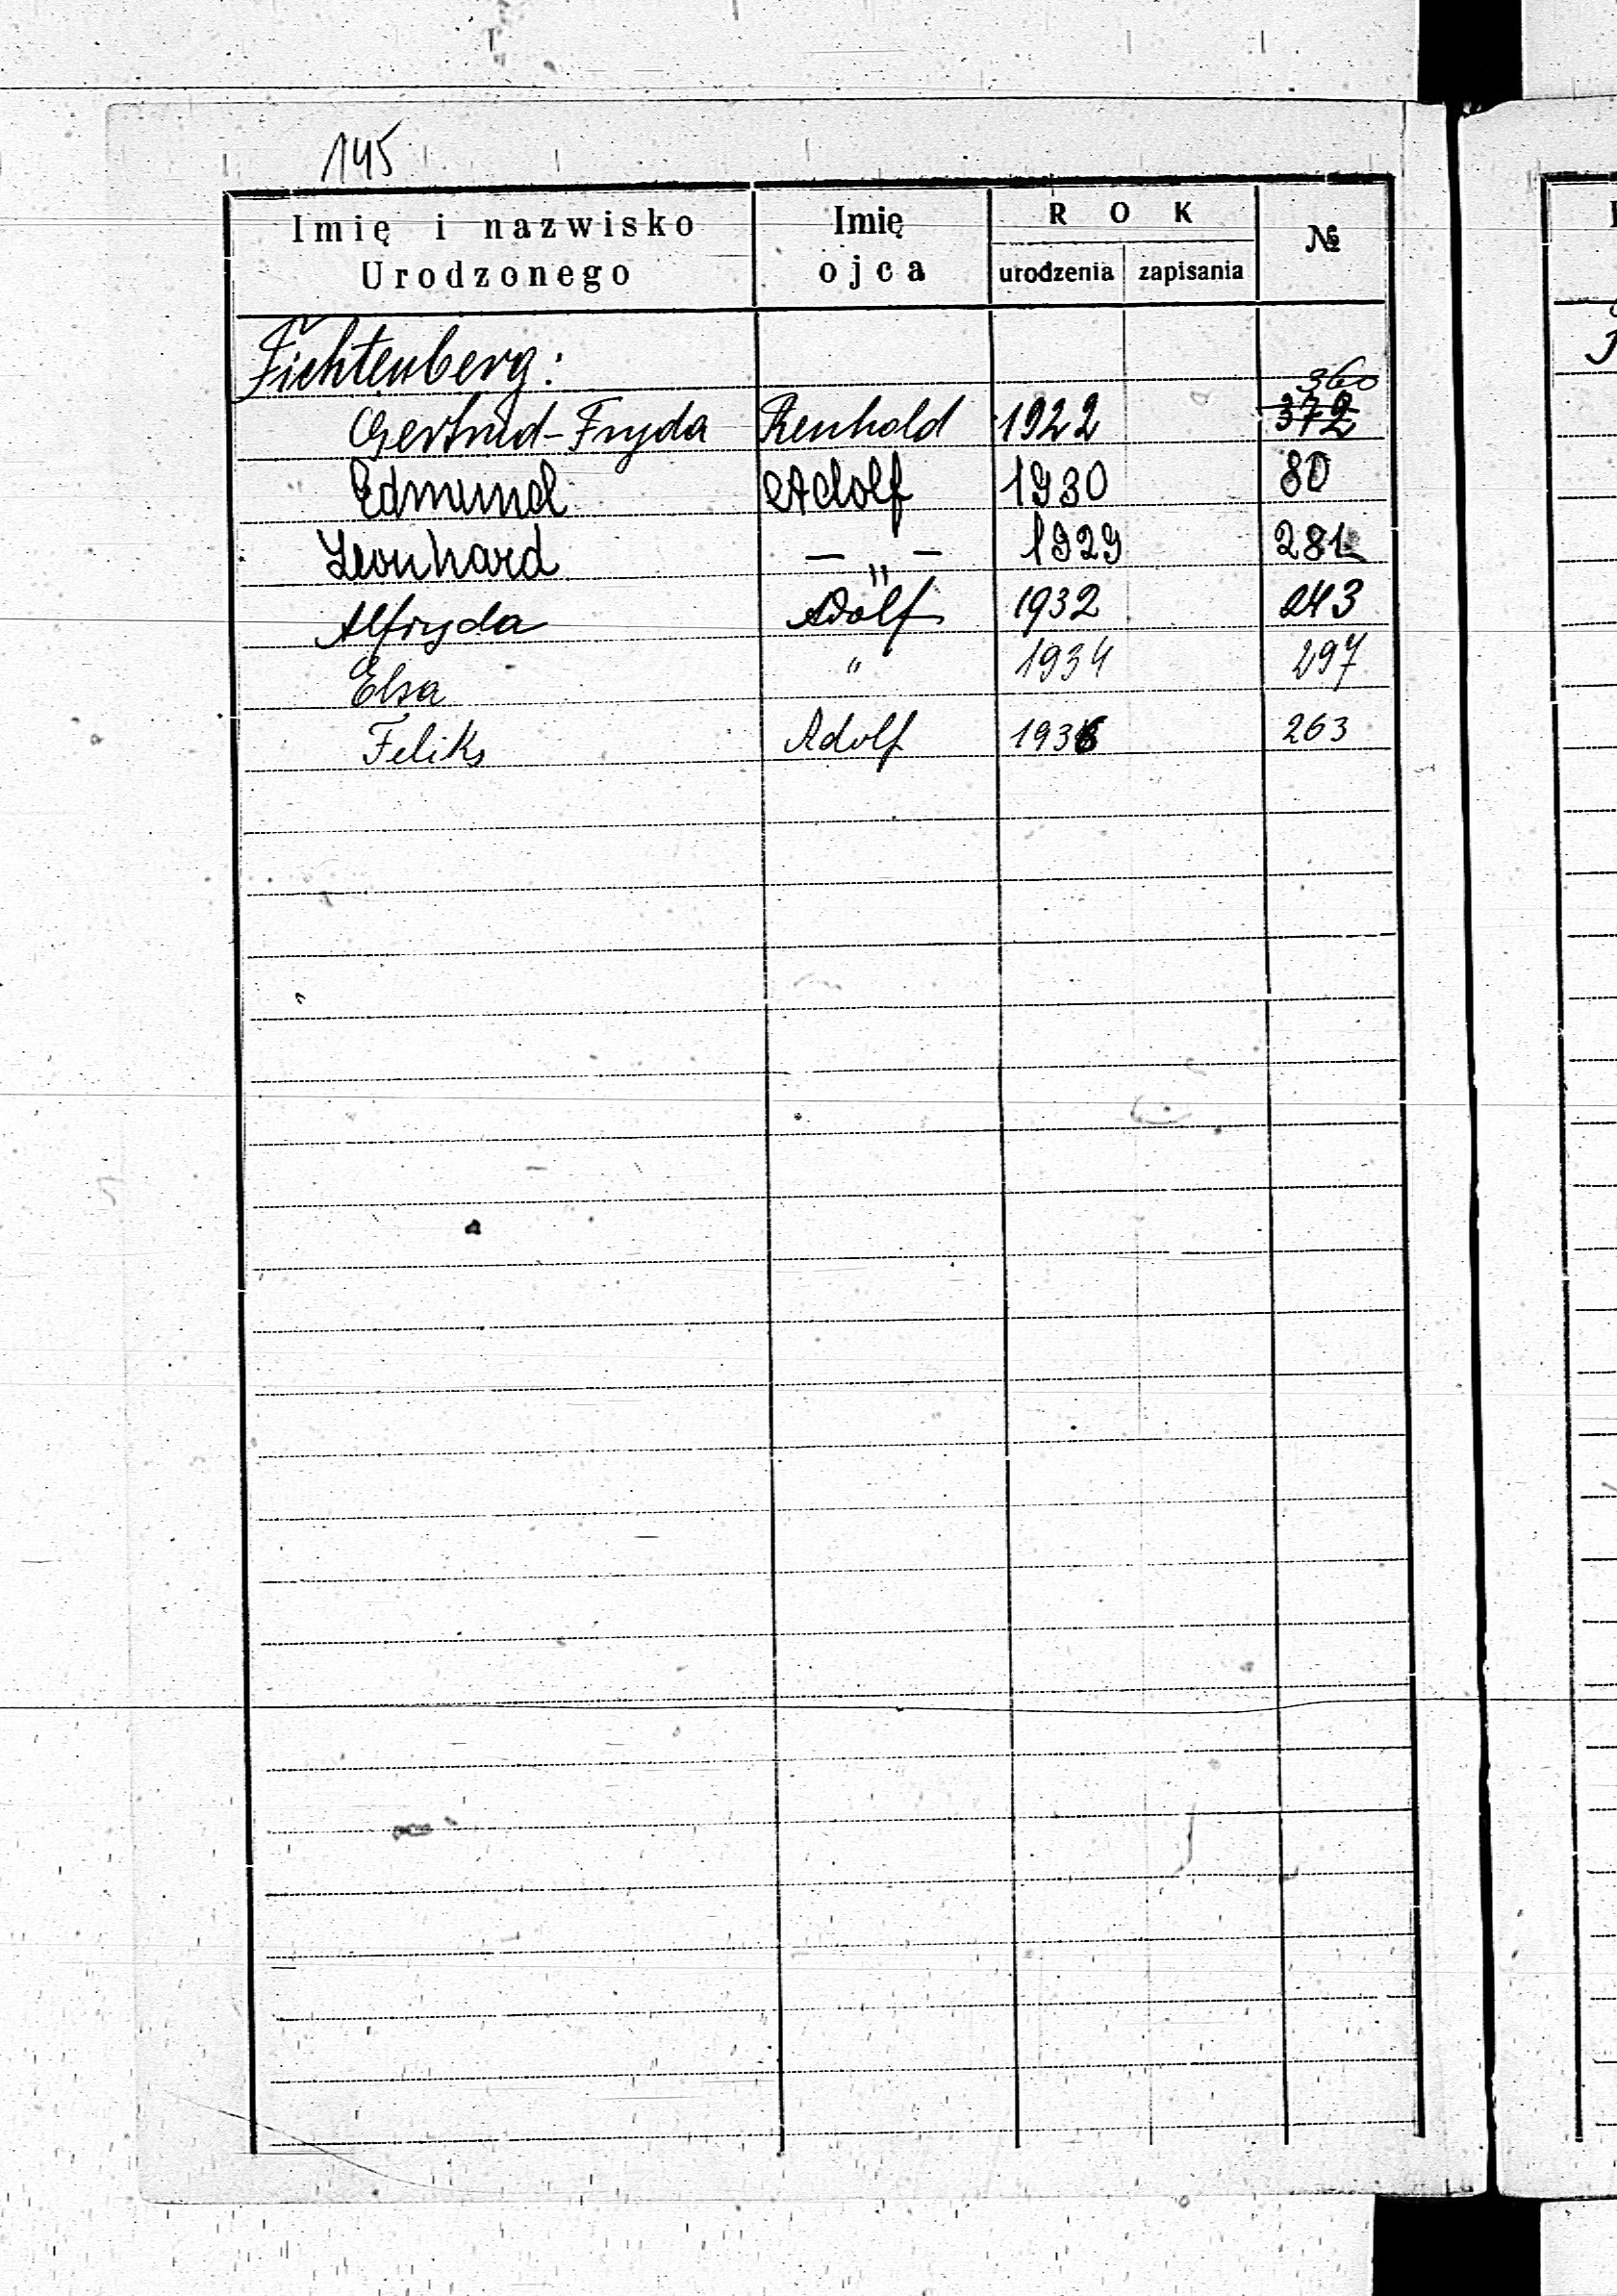 145
Imię i nazwisko Urodzonego | Imię ojca | ROK urodzenia | zapisania | №
Fichtenberg:
360
Gertrud-Fryda Renhold 1922 372
Edmund Adolf 1930 80
Leonhard — " — 1929 281
Alfryda Adolf 1932 243
Elsa " 1934 297
Feliks Adolf 1936 263